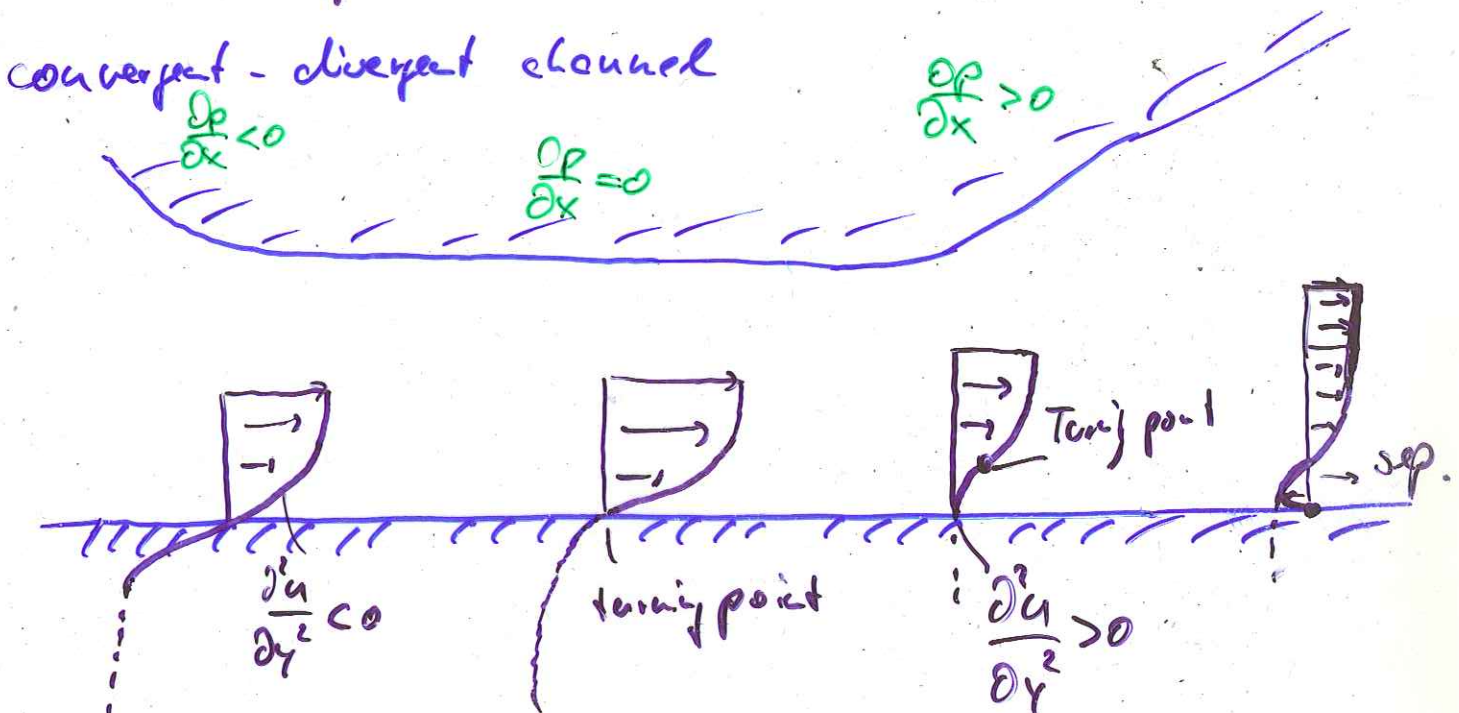 convergent - divergent channel
∂p/∂x < 0
∂p/∂x = 0
∂p/∂x > 0
Turning point
sep.
∂²u/∂y² < 0
turning point
∂²u/∂y² > 0